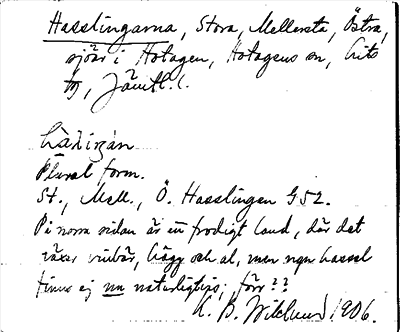 Hasslingarna, Stora, Mellersta, Östra,
sjöar i Hotagen, Hotagens sn, Lits
tg, Jämtl. l.
Plural form.
St., Mell., Ö. Hasslingen G52.
På norra sidan är ett frodigt land, där det
växer vinbär, hägg och al, men ngn hassel
finns ej nu naturligtvis; förr??
K. B. Wiklund 1906.